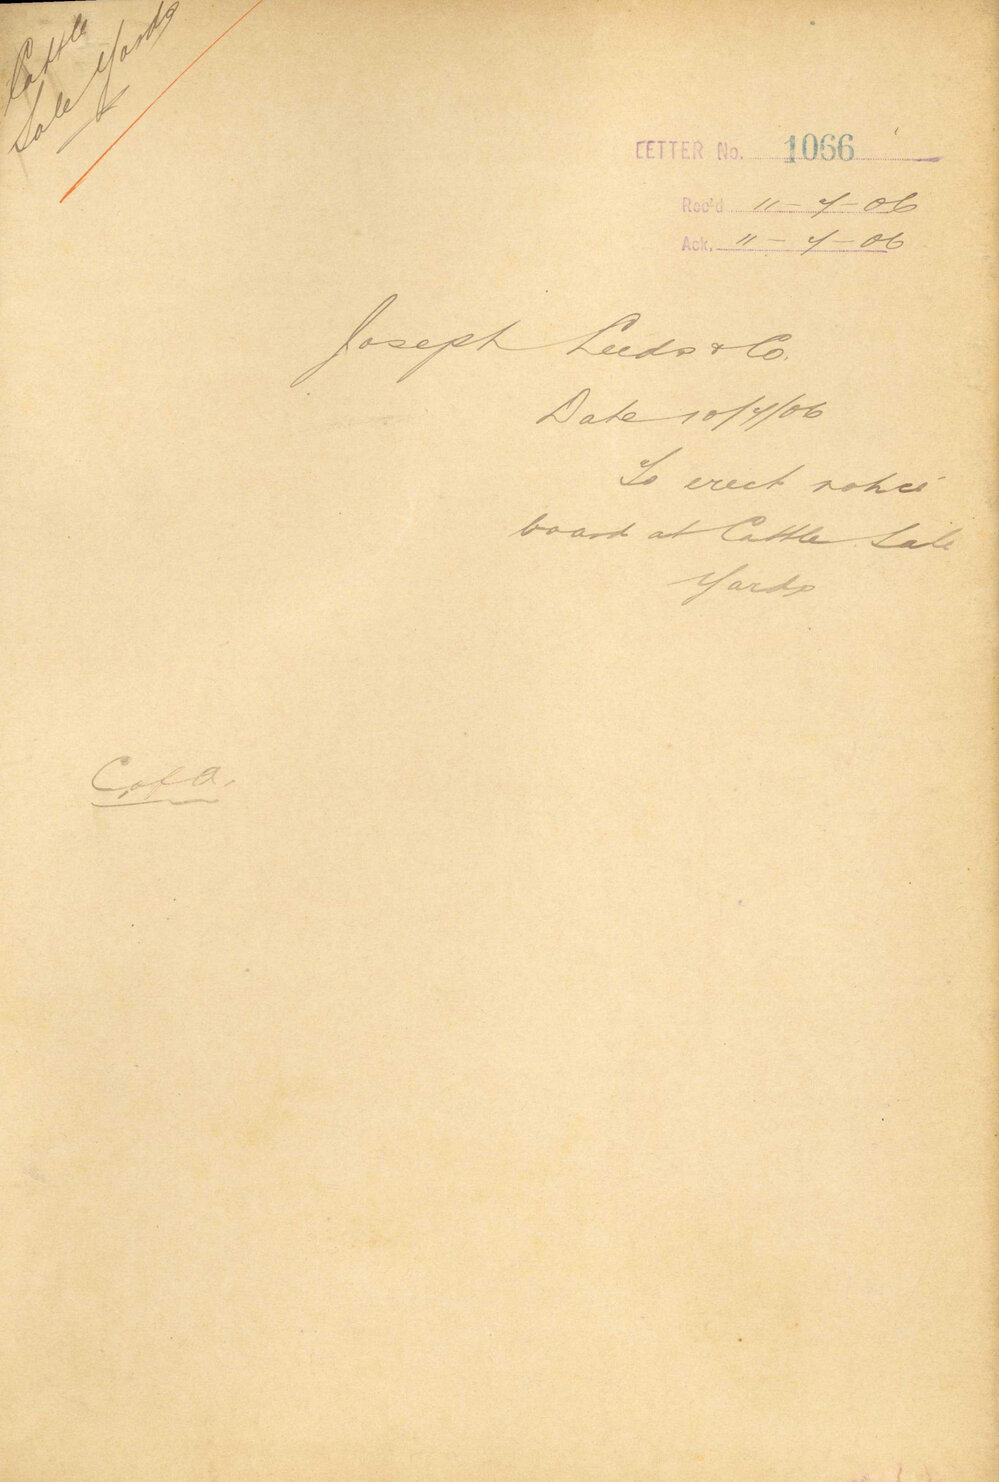 Cattle
Sale Yards
LETTER No. 1066
Rec'd 11-7-06
Ack. 11-7-06
Joseph Leeds & Co.
Date 10/7/06
To erect notice
board at Cattle Sale
Yards
C. of A.